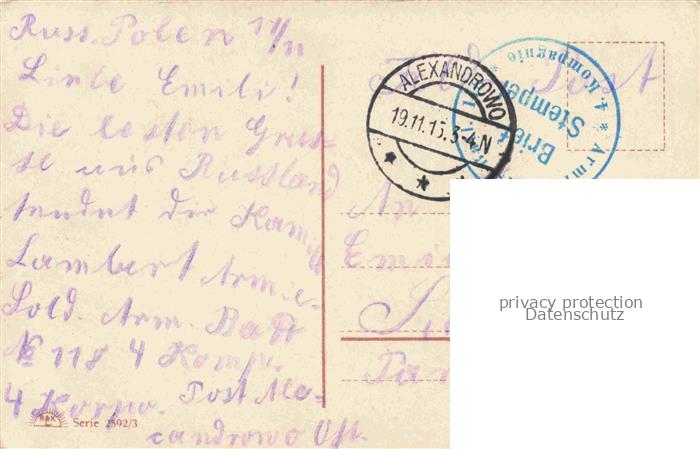 Russ. Polen 17/11
Liebe Emili!
Die besten Grus-
se aus Russland
sendet dir Kam
Lambert Armie-
Sold. Arm. Batt
№ 118 4 Komp.
4 Korpo. Post Ale-
xandrowo Ost.
RAK
Serie 2592/3
Feld Post
ALEXANDROWO
19.11.15. 3-4 N
4. Kompagnie * Arm
Brief
Stempel
An
Emi
privacy protection
Datenschutz